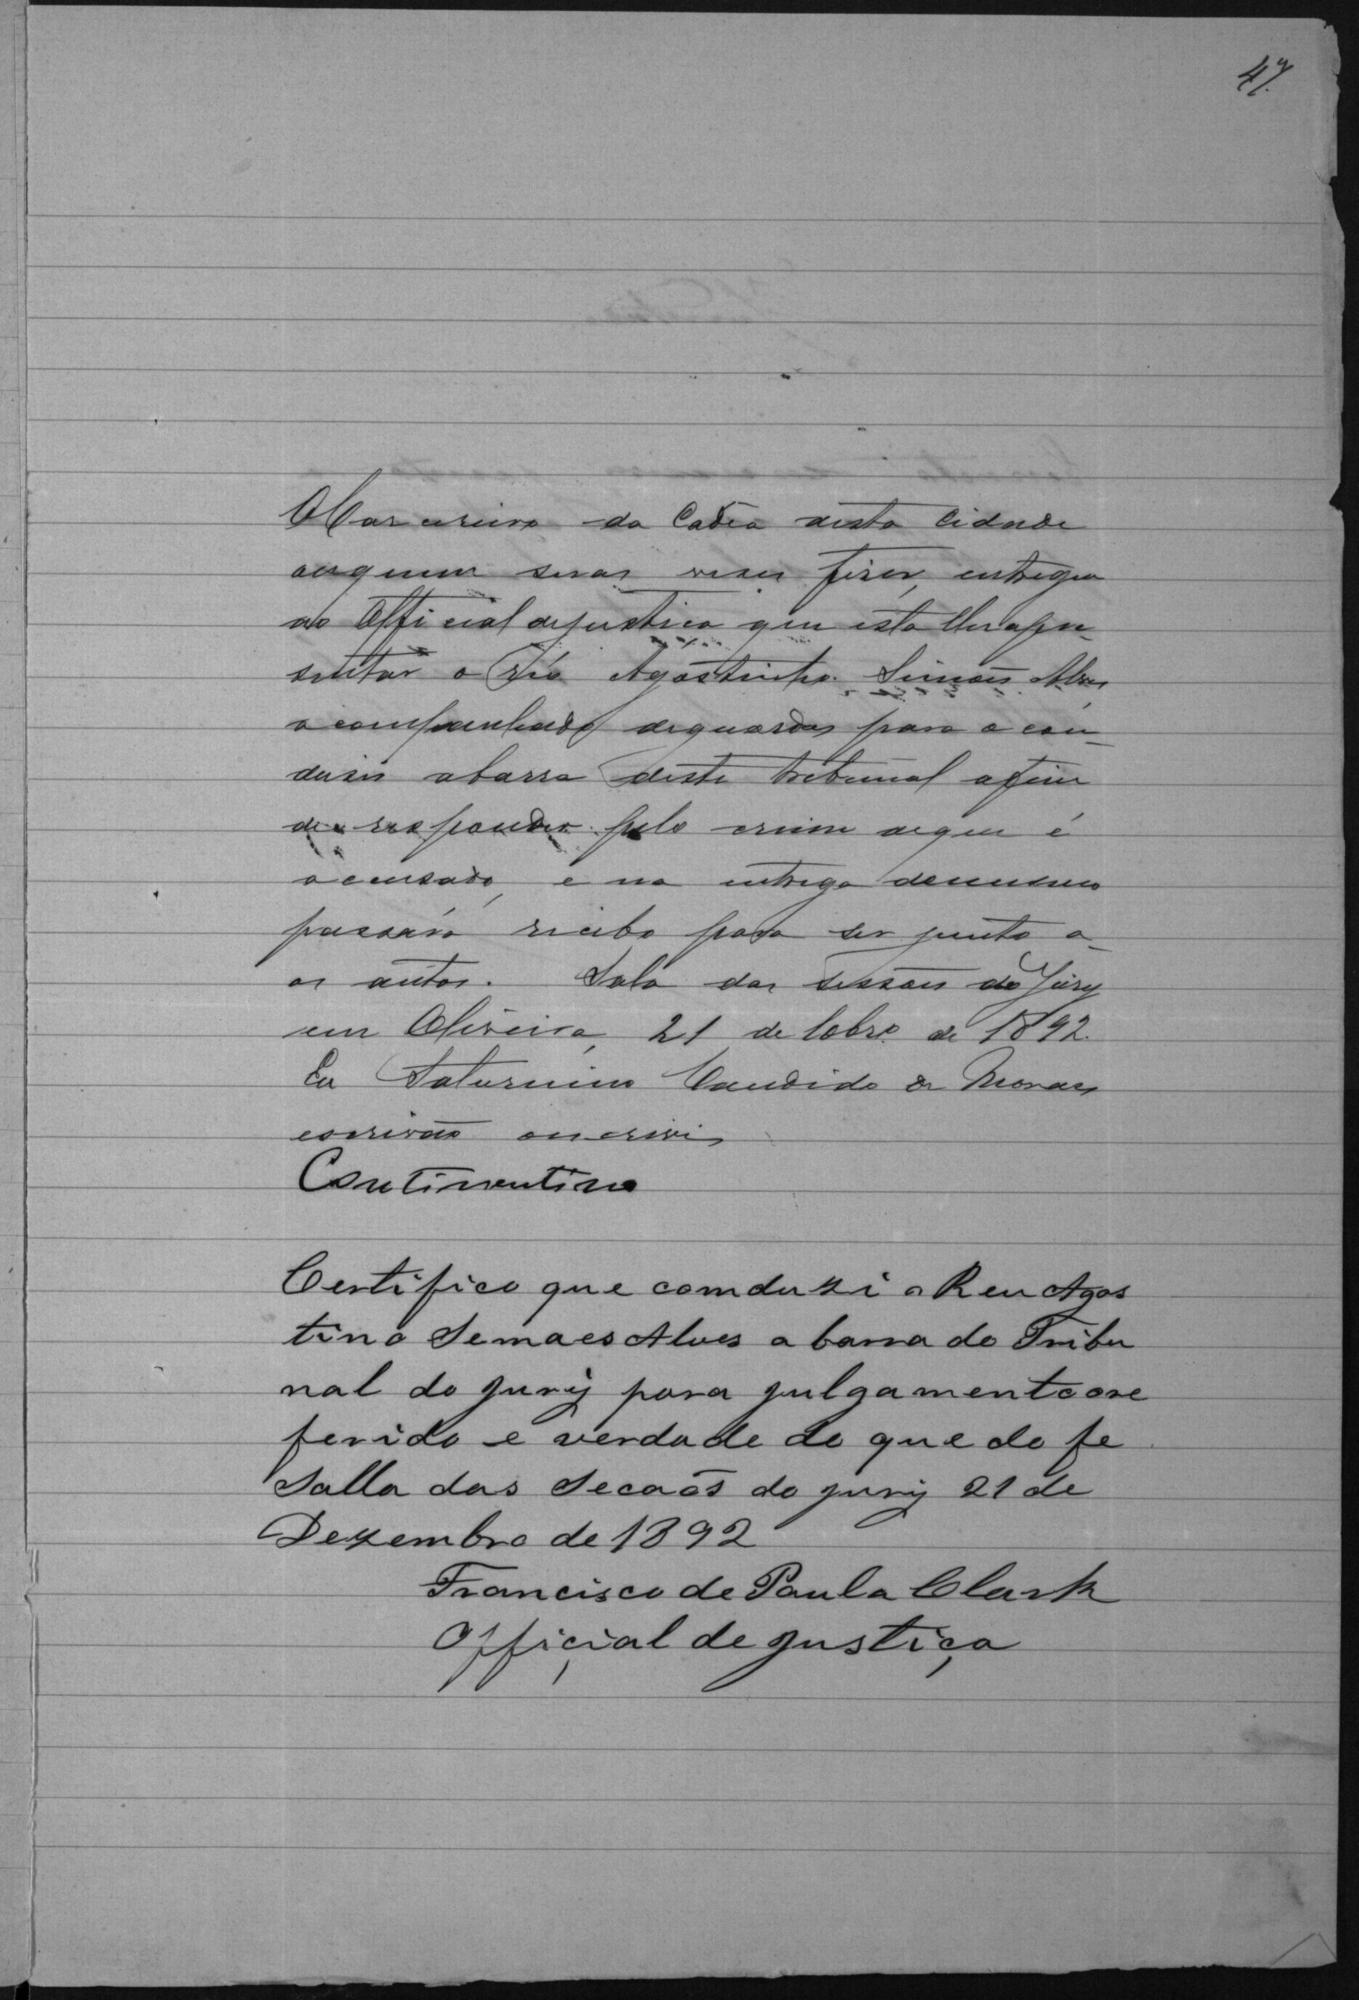 47
O Carcereiro da Cadêa desta Cidade
aoquem suas vezes fizer, entregue
ao Official dejustiça que esta lhe apre-
sentar o réo Agostinho Simões Alves
acompanhado deguardas para o con-
dusir abarra deste tribunal afim
de responder pelo crime deque é
accusado, e na entrega do mesmo
passará recibo para ser junto a-
os autos. Sala das sessões do Jury
em Oliveira, 21 de 10brº de 1892.
Eu Saturnino Candido de Moraes
escrivão oescrevi
Continentino
Certifico que comduzi o Reu Agos
tino Semaes Alves a barra do Tribu
nal do jury para julgamento ore
ferido e verdade do que do fe
Salla das Secaõs do jury 21 de
Dezembro de 1892
Francisco de Paula Clark
Offiçial de justiça